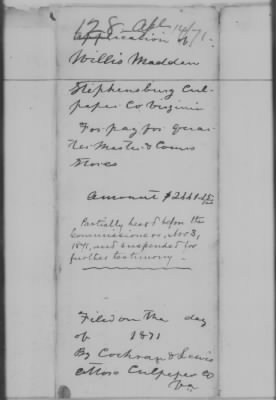 128 Apl 14/71
Application of
Willis Madden
Stephensburg Cul-
peper Co Virginia
For pay for Quar-
ter Master & Coms
Stores
Amount $2661.
Partially heard before the
Commissioners, Nov 3,
1871, and suspended for
further testimony.
Filed on the day
of 1871
By Cochran & Lewis
Attos Culpeper Co
Va